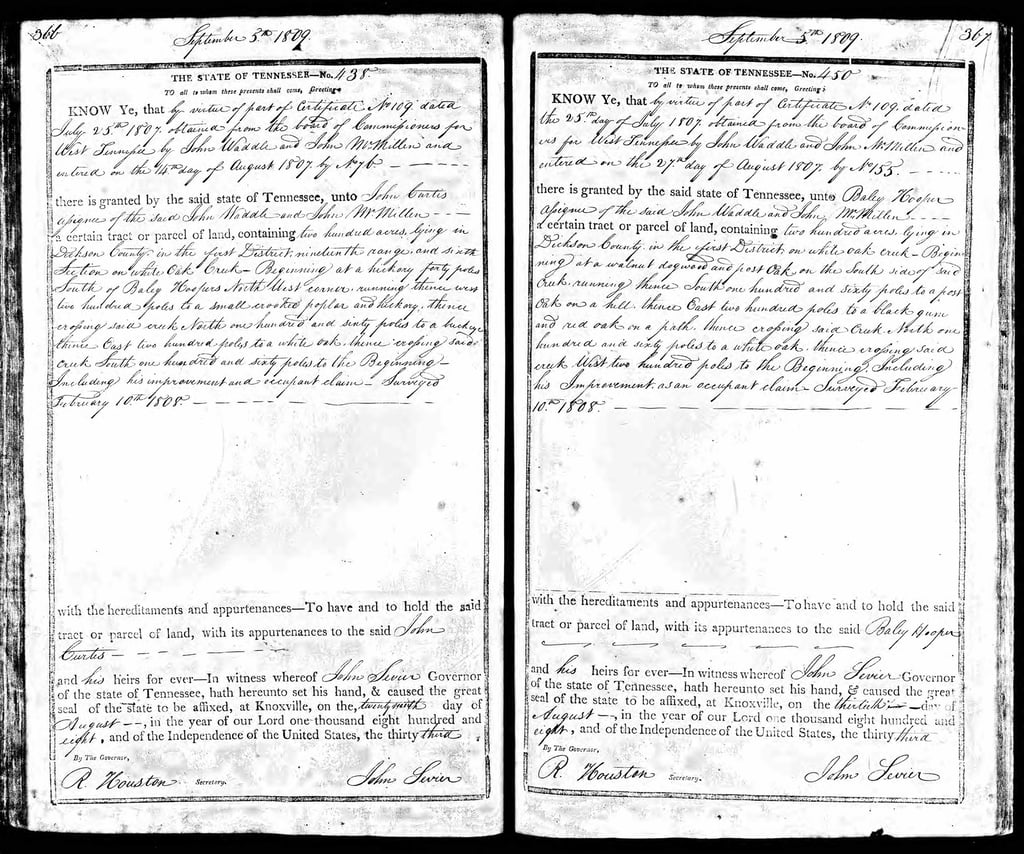 366
September 5th 1809.
THE STATE OF TENNESSEE—No. 438
TO all to whom these presents shall come, Greeting
KNOW Ye, that by virtue of part of Certificate No 109 dated
July 25th 1807 obtained from the board of Commissioners for
West Tennessee by John Waddle and John McMillen and
entered on the 14th day of August 1807 by No 76
there is granted by the said state of Tennessee, unto John Curtis
assignee of the said John Waddle and John McMillen
a certain tract or parcel of land, containing two hundred acres, lying in
Dickson County in the first District, nineteenth range, and sixth
Section on white Oak Creek – Beginning at a hickory forty poles
South of Baley Hoopers North West corner, running thence west
two hundred poles to a small crooked poplar and hickory, thence
crossing said creek North one hundred and sixty poles to a buckeye
thence East two hundred poles to a white oak, thence crossing said
creek South one hundred and sixty poles to the Beginning –
Including his improvement and occupant claim – Surveyed
February 10th 1808.
with the hereditaments and appurtenances—To have and to hold the said
tract or parcel of land, with its appurtenances to the said John
Curtis
and his heirs for ever—In witness whereof John Sevier Governor
of the state of Tennessee, hath hereunto set his hand, & caused the great
seal of the state to be affixed, at Knoxville, on the, twenty ninth day of
August, in the year of our Lord one thousand eight hundred and
eight, and of the Independence of the United States, the thirty third
By The Governor,
R. Houston Secretary. John Sevier
367
September 5th 1809.
THE STATE OF TENNESSEE—No. 450
TO all to whom these presents shall come, Greeting:
KNOW Ye, that by virtue of part of Certificate No 109. dated
the 25th day of July 1807 obtained from the board of Commission-
ers for West Tennessee by John Waddle and John McMillen and
entered on the 27th day of August 1807. by No 155.
there is granted by the said state of Tennessee, unto Baley Hooper
assignee of the said John Waddle and John McMillen
a certain tract or parcel of land, containing two hundred acres, lying in
Dickson County in the first District, on white oak creek – Begin-
ning at a walnut dogwood and post Oak, on the South side of said
Creek, running thence South one hundred and sixty poles to a post
Oak on a hill, thence East two hundred poles to a black gum
and red oak on a path, thence crossing said Creek North one
hundred and sixty poles to a white oak, thence crossing said
creek West two hundred poles to the Beginning, Including
his Improvement, as an occupant claim – Surveyed February
10th 1808.
with the hereditaments and appurtenances—To have and to hold the said
tract or parcel of land, with its appurtenances to the said Baley Hooper
and his heirs for ever—In witness whereof John Sevier Governor
of the state of Tennessee, hath hereunto set his hand, & caused the great
seal of the state to be affixed, at Knoxville, on the thirtieth day of
August, in the year of our Lord one thousand eight hundred and
eight, and of the Independence of the United States, the thirty third
By The Governor,
R. Houston Secretary. John Sevier